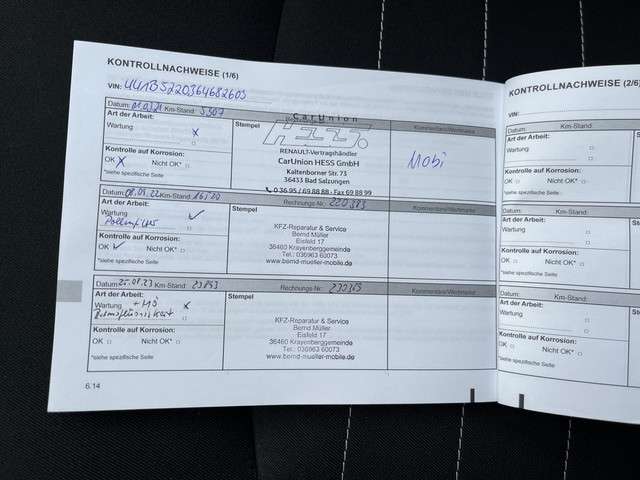 KONTROLLNACHWEISE (1/6)
VIN:
Datum: 01.03.21 Km-Stand: 5307
Art der Arbeit:
Wartung x
Stempel
Kommentare/Werkmarke
Kontrolle auf Korrosion:
OK x Nicht OK* □
*siehe spezifische Seite
CarUnion
RENAULT-Vertragshändler
CarUnion HESS GmbH
Kaltenborner Str. 73
36433 Bad Salzungen
0 36 95 / 69 88 88 - Fax 69 88 99
Mobi
Datum: Km-Stand:
Rechnungs-Nr.: 220383
Kommentare/Werkmarke
Art der Arbeit:
Wartung ✓
□
Kontrolle auf Korrosion:
OK ✓ Nicht OK* □
*siehe spezifische Seite
Stempel
KFZ-Reparatur & Service
Bernd Müller
Eisfeld 17
36460 Krayenberggemeinde
Tel.: 036963 60073
www.bernd-mueller-mobile.de
Datum: Km-Stand:
Rechnungs-Nr.:
Kommentare/Werkmarke
Art der Arbeit:
Wartung x
□
Kontrolle auf Korrosion:
OK □ Nicht OK* □
*siehe spezifische Seite
Stempel
KFZ-Reparatur & Service
Bernd Müller
Eisfeld 17
36460 Krayenberggemeinde
Tel.: 036963 60073
www.bernd-mueller-mobile.de
6.14
KONTROLLNACHWEISE (2/6)
VIN:
Datum: Km-Stand:
Art der Arbeit:
Wartung □
□
Kontrolle auf Korrosion:
OK □ Nicht OK* □
*siehe spezifische Seite
Datum: Km-Stand:
Art der Arbeit:
Wartung □
□
Kontrolle auf Korrosion:
OK □ Nicht OK* □
*siehe spezifische Seite
Datum: Km-Stand:
Art der Arbeit:
Wartung □
□
Kontrolle auf Korrosion:
OK □ Nicht OK* □
*siehe spezifische Seite